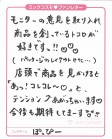 モニターの意見を取り入れ
商品を創っているトコロが
好きです!!
(パッケージのレイアウトセンスも…)
店頭で商品を見かけると
「あっ!コレコレ〜」と、
テンション↗あがっちゃいます
今後も期待してまーす
ぽっぴー